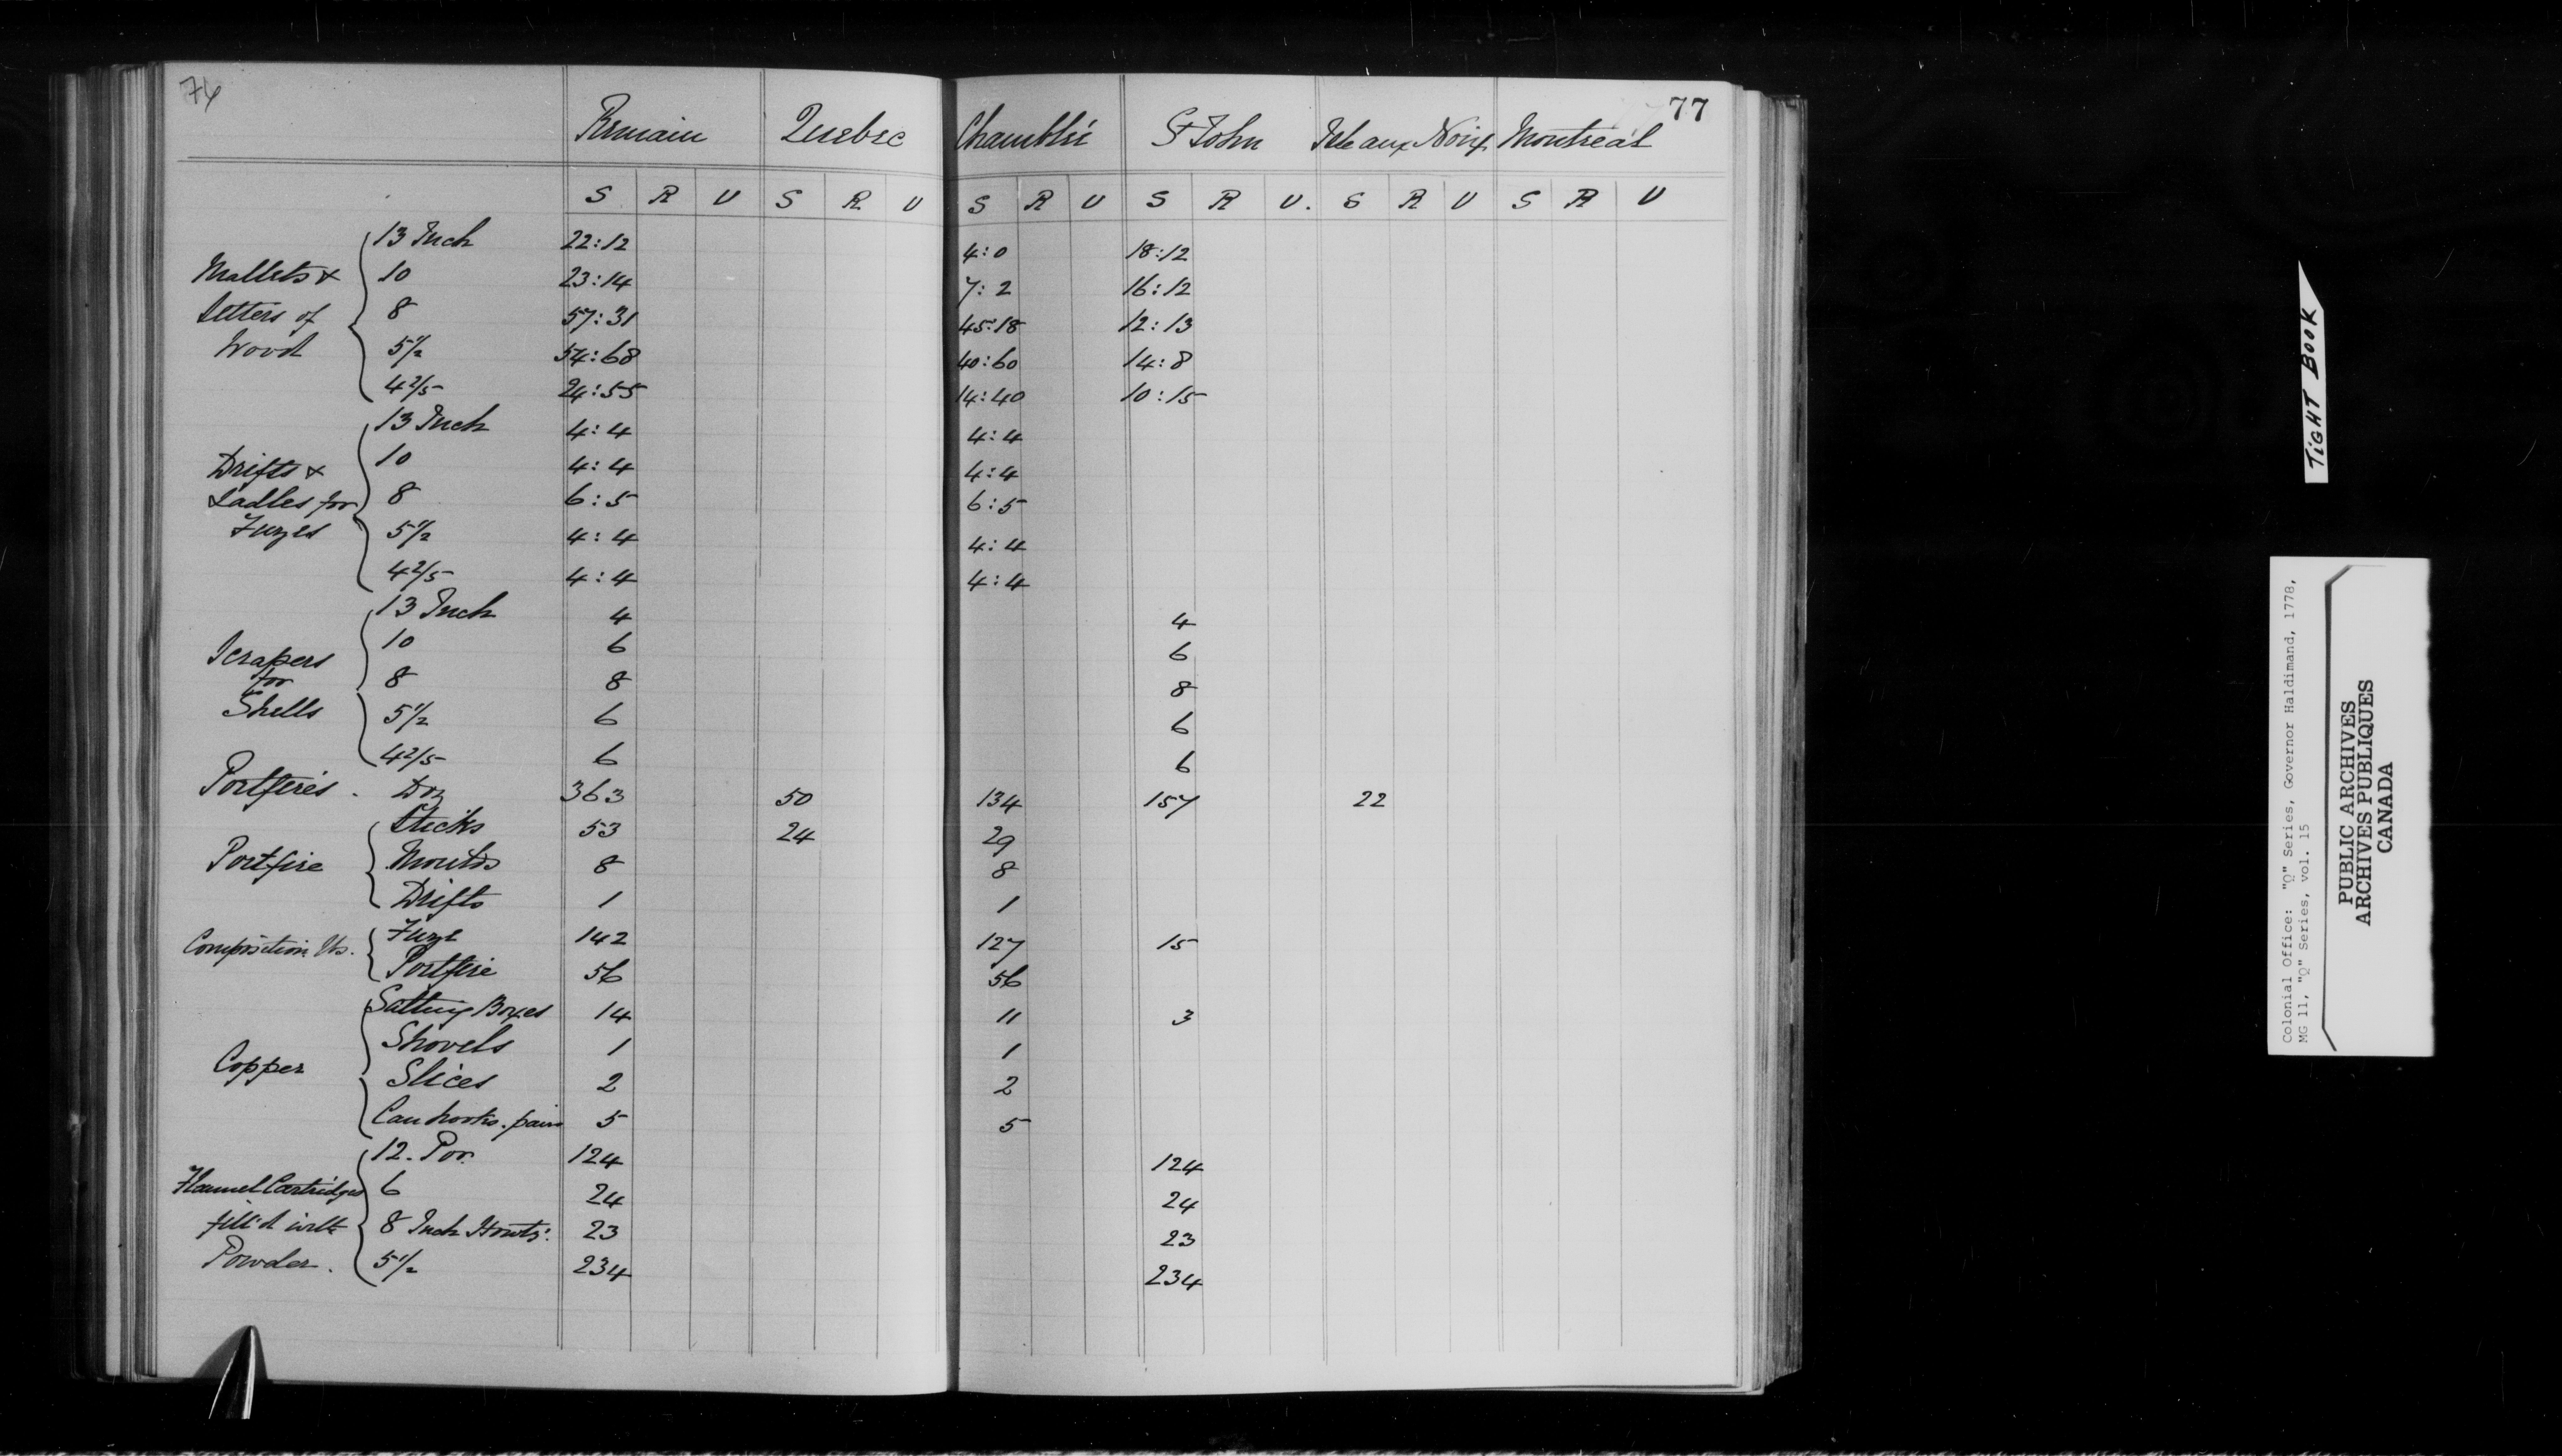 76
77
Remain Quebec Chamblié St John Isle aux Noix Montreal
S R U S R U S R U S R U. S R U S R U
Mallets & Setters of Wood
13 Inch 22:12 4:0 18:12
10 23:14 7:2 16:12
8 57:31 45:18 12:13
5½ 54:68 40:60 14:8
4 2/5 24:55 14:40 10:15
Drifts & Ladles for Fuzes
13 Inch 4:4 4:4
10 4:4 4:4
8 6:5 6:5
5½ 4:4 4:4
4 2/5 4:4 4:4
Scrapers for Shells
13 Inch 4 4
10 6 6
8 8 8
5½ 6 6
4 2/5 6 6
Portfires . Doz 363 50 134 157 22
Portfire
Sticks 53 24 29
Moulds 8 8
Drifts 1 1
Composition lbs.
Fuze 142 127 15
Portfire 56 56
Copper
Salting Boxes 14 11 3
Shovels 1 1
Slices 2 2
Can hooks . pairs 5 5
Flannel Cartridges fill'd with Powder .
12 . Por. 124 124
6 24 24
8 Inch Howts: 23 23
5½ 234 234
TIGHT BOOK
Colonial Office: "Q" Series, Governor Haldimand, 1778,
MG 11, "Q" Series, vol. 15
PUBLIC ARCHIVES
ARCHIVES PUBLIQUES
CANADA